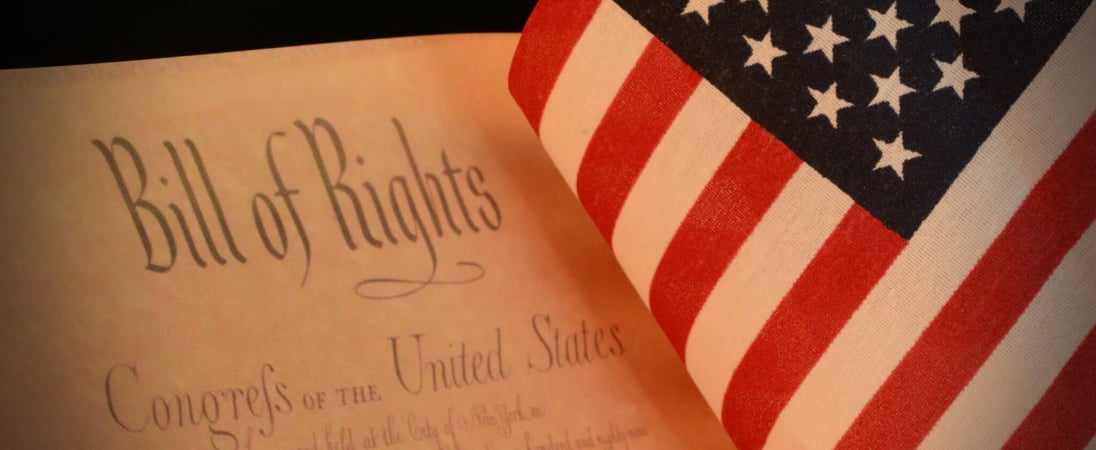 Bill of Rights
Congreſs OF THE United States
held at the City of New York, on
hundred and eighty-nine